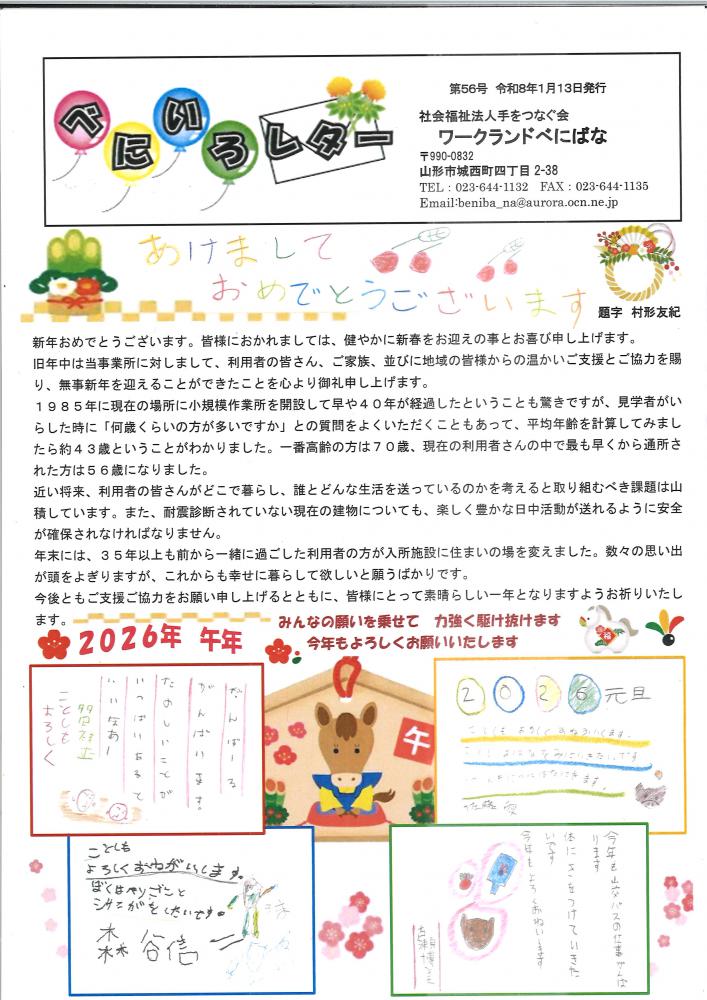 べにいろレター
第56号 令和8年1月13日発行
社会福祉法人手をつなぐ会
ワークランドべにばな
〒990-0832
山形市城西町四丁目 2-38
TEL：023-644-1132 FAX：023-644-1135
Email:beniba_na@aurora.ocn.ne.jp
あけまして
おめでとうございます
題字 村形友紀
新年おめでとうございます。皆様におかれましては、健やかに新春をお迎えの事とお喜び申し上げます。
旧年中は当事業所に対しまして、利用者の皆さん、ご家族、並びに地域の皆様からの温かいご支援とご協力を賜
り、無事新年を迎えることができたことを心より御礼申し上げます。
１９８５年に現在の場所に小規模作業所を開設して早や４０年が経過したということも驚きですが、見学者がい
らした時に「何歳くらいの方が多いですか」との質問をよくいただくこともあって、平均年齢を計算してみまし
たら約４３歳ということがわかりました。一番高齢の方は７０歳、現在の利用者さんの中で最も早くから通所さ
れた方は５６歳になりました。
近い将来、利用者の皆さんがどこで暮らし、誰とどんな生活を送っているのかを考えると取り組むべき課題は山
積しています。また、耐震診断されていない現在の建物についても、楽しく豊かな日中活動が送れるように安全
が確保されなければなりません。
年末には、３５年以上も前から一緒に過ごした利用者の方が入所施設に住まいの場を変えました。数々の思い出
が頭をよぎりますが、これからも幸せに暮らして欲しいと願うばかりです。
今後ともご支援ご協力をお願い申し上げるとともに、皆様にとって素晴らしい一年となりますようお祈りいたし
ます。
みんなの願いを乗せて 力強く駆け抜けます
2026年 午年
今年もよろしくお願いいたします
福
午
がんばーる
がんばいます。
たのしいことが
いっぱいあるて
いいなあー
ことしも
よろしく
2026元旦
ことしも
よろしくおねがいします。
ぼくはやりごこと
今年も山交バスの仕事がんば
ります
体にきをつけていきた
いです
今年もよろしくおねがいします